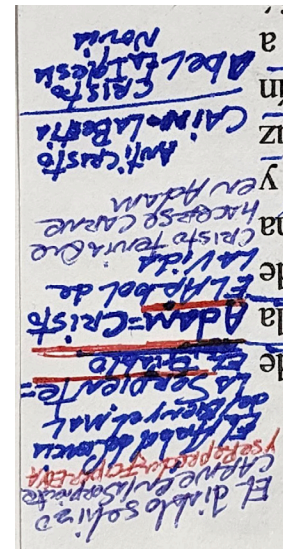 El diablo se hizo
CARNE en la Serpiente
y se reprodujo por EVA
El Arbol de la ciencia
del Bien y el MAL
LA Serpiente=
EL Diablo
Adam=Cristo
El Arbol de
La Vida
Cristo tenia que
hacerse CARNE
en Adam
AntiCristo
CAIN=La Bestia
CRISTO
Abel La Iglesia
Novia
de
la
de
y
a